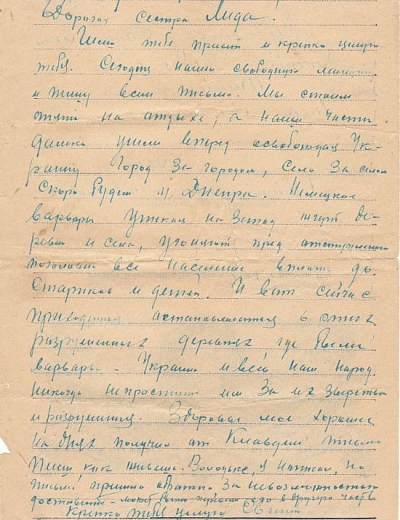 Дорогая сестра Лида.
Шлю тебе привет и крепко целую
тебя. Сегодня нашел свободную минутку
и пишу всем письма. Мы стоим
опять на атдыхе, а наши части
ушли вперед освобождая Ук-
раину Город За городом, Село За селом
Скоро будем у Днепра. Немецкие
варвары на Запад жгут де-
ревни и села, угоняют пред
все население вплоть до
Стариков и детей. И вот сейчас
приходится астанавливатся в этих
разрушенных деревнях где были
варвары. Украина и весь наш народ
никогда непростит им За их Зверства
и разрушения. Здоровье мое хорошее
На днях получил от Клавдии письмо
Пиши как живеш. Володьке я написал, но
письмо пришло абратно За невозможностью
доставить. в другую часть
Крепко тебя целую Евгений